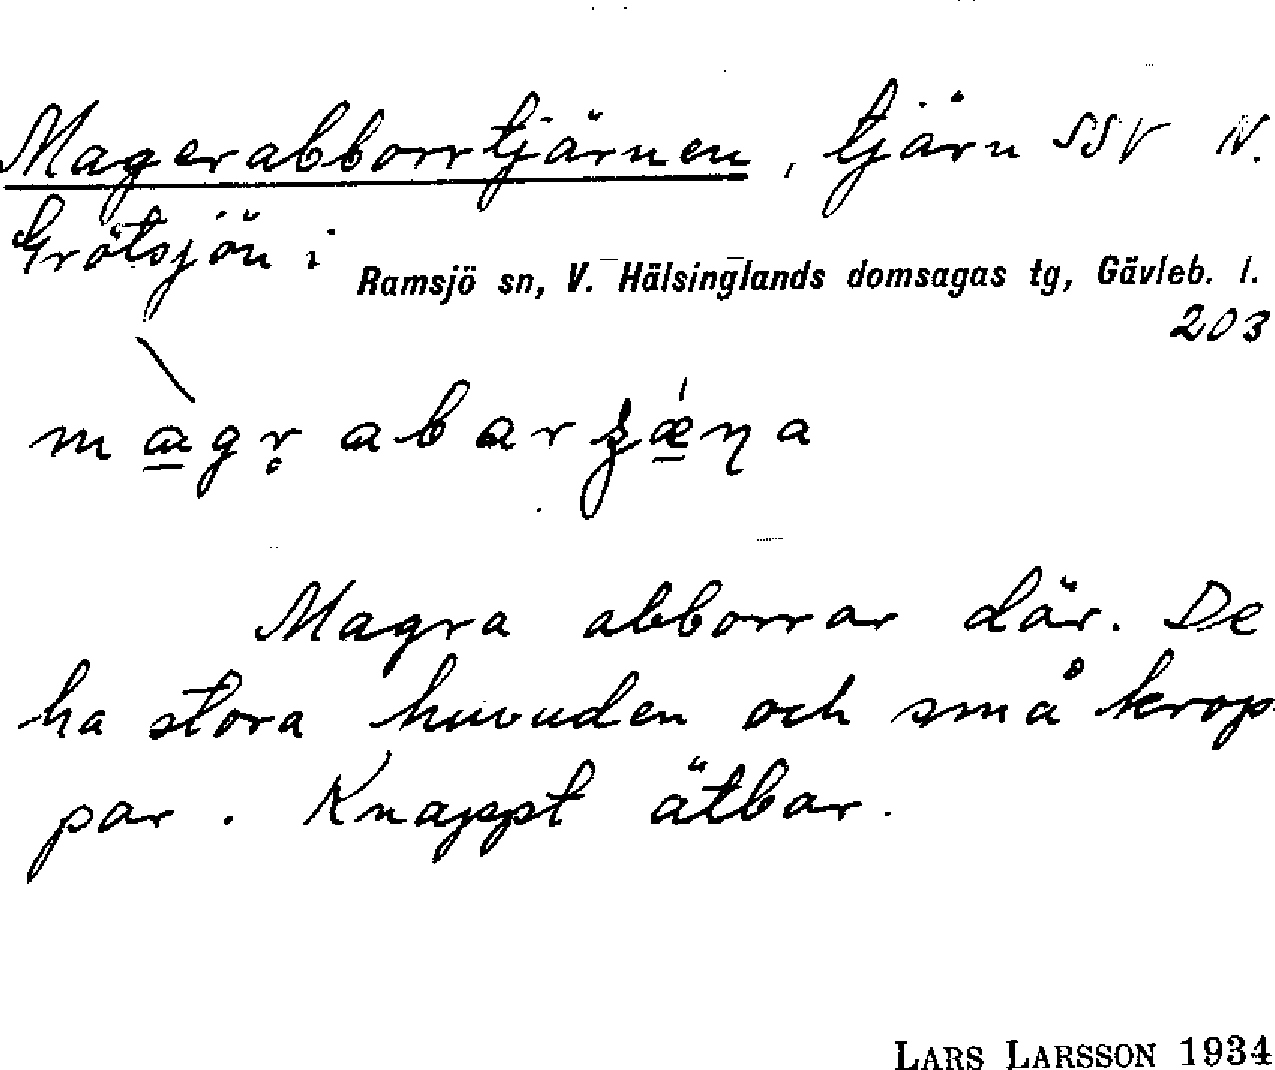 Magerabborrtjärnen, tjärn SSV N.
Grötsjön i
Ramsjö sn, V. Hälsinglands domsagas tg, Gävleb. l.
203
Magra abborrar där. De
ha stora huvuden och små krop
par. Knappt ätbar.
LARS LARSSON 1934